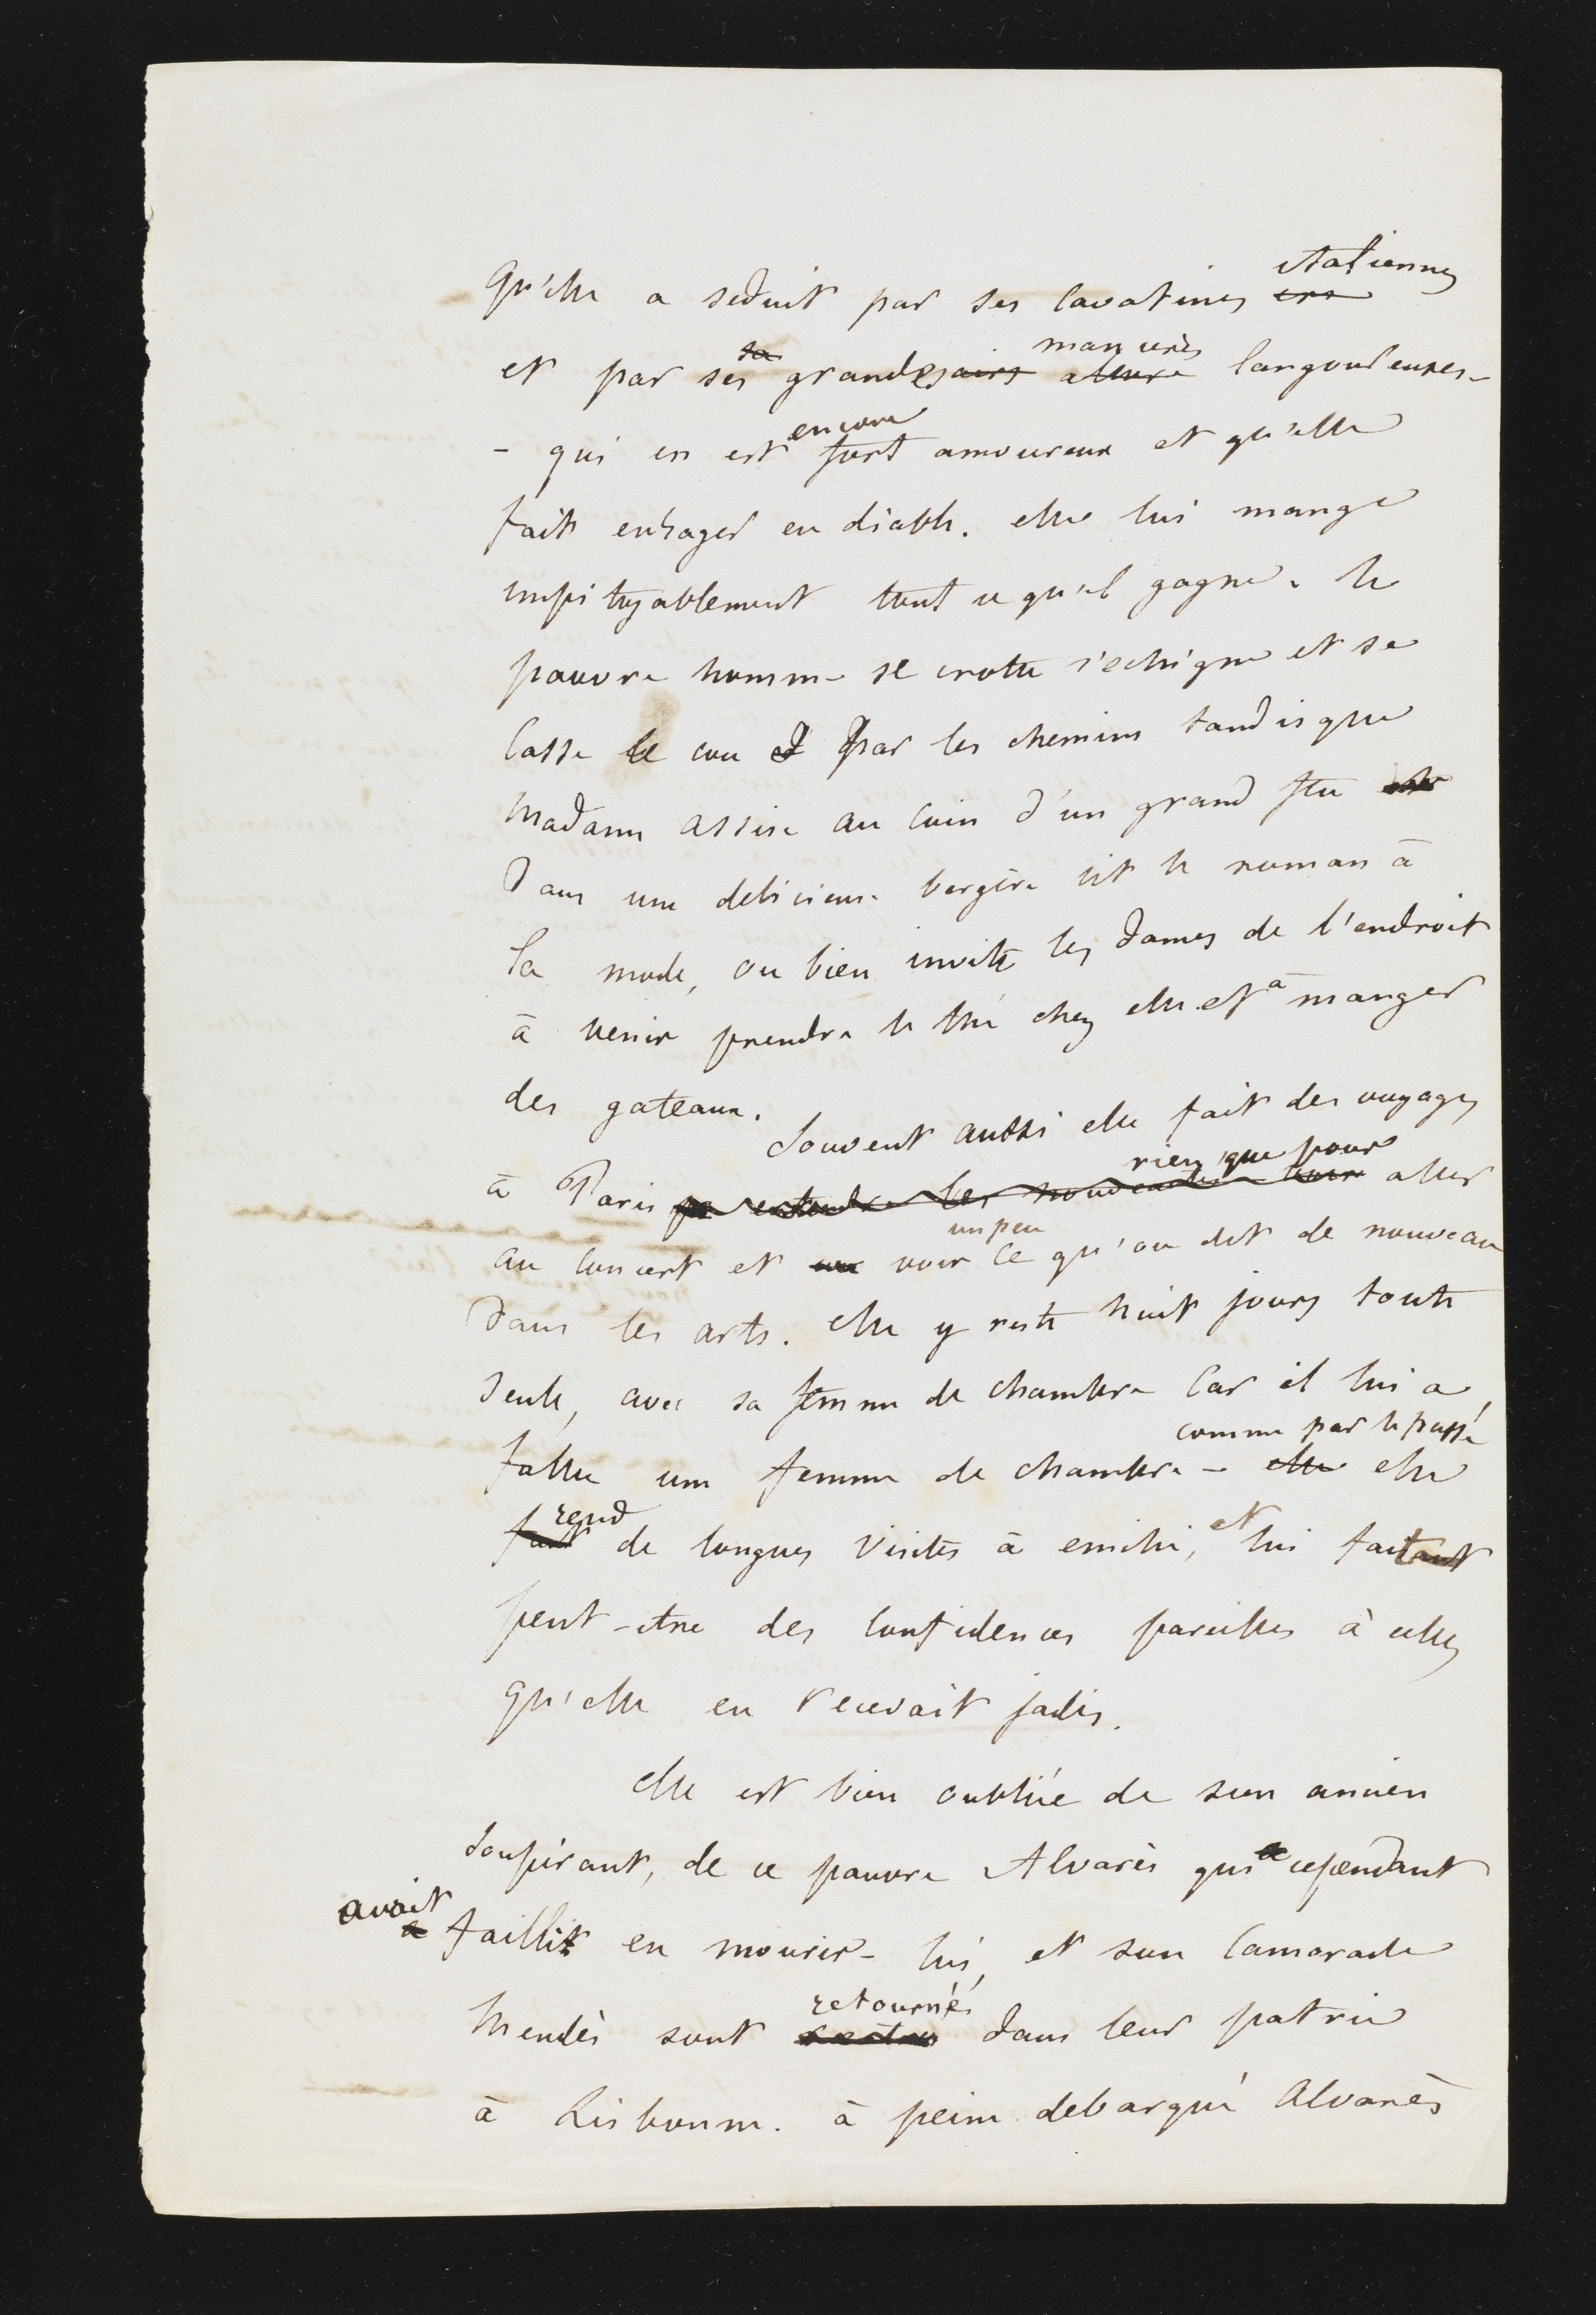 qu'elle a seduit par ses cavatines italiennes
et par ses grandes manières langoureuses-
- qui en est encore fort amoureux et qu'elle
fait enrager en diable. elle lui mange
impitoyablement tout ce qu'il gagne. le
pauvre homme se crotte s'echigne et se
casse le cou par les chemins tandis que
Madame assise au coin d'un grand feu
dans une delicieuse bergère lit le roman à
la mode, ou bien invite les dames de l'endroit
à venir prendre le thé chez elle et à manger
des gateaux. Souvent aussi elle fait des voyages
à Paris rien que pour aller
au concert et voir un peu ce qu'on dit de nouveau
dans les arts. elle y reste huit jours toute
seule, avec sa femme de chambre car il lui a
fallu une femme de chambre - comme par le passé elle
rend de longues visites à emilie, et lui fait
peut-etre des confidences pareilles à celles
qu'elle en recevait jadis.
elle est bien oubliée de son ancien
soupirant, de ce pauvre Alvarès qui cependant
avait failli en mourir - lui, et son camarade
Mendès sont retournés dans leur patrie
à Lisbonne. à peine debarqué Alvarès